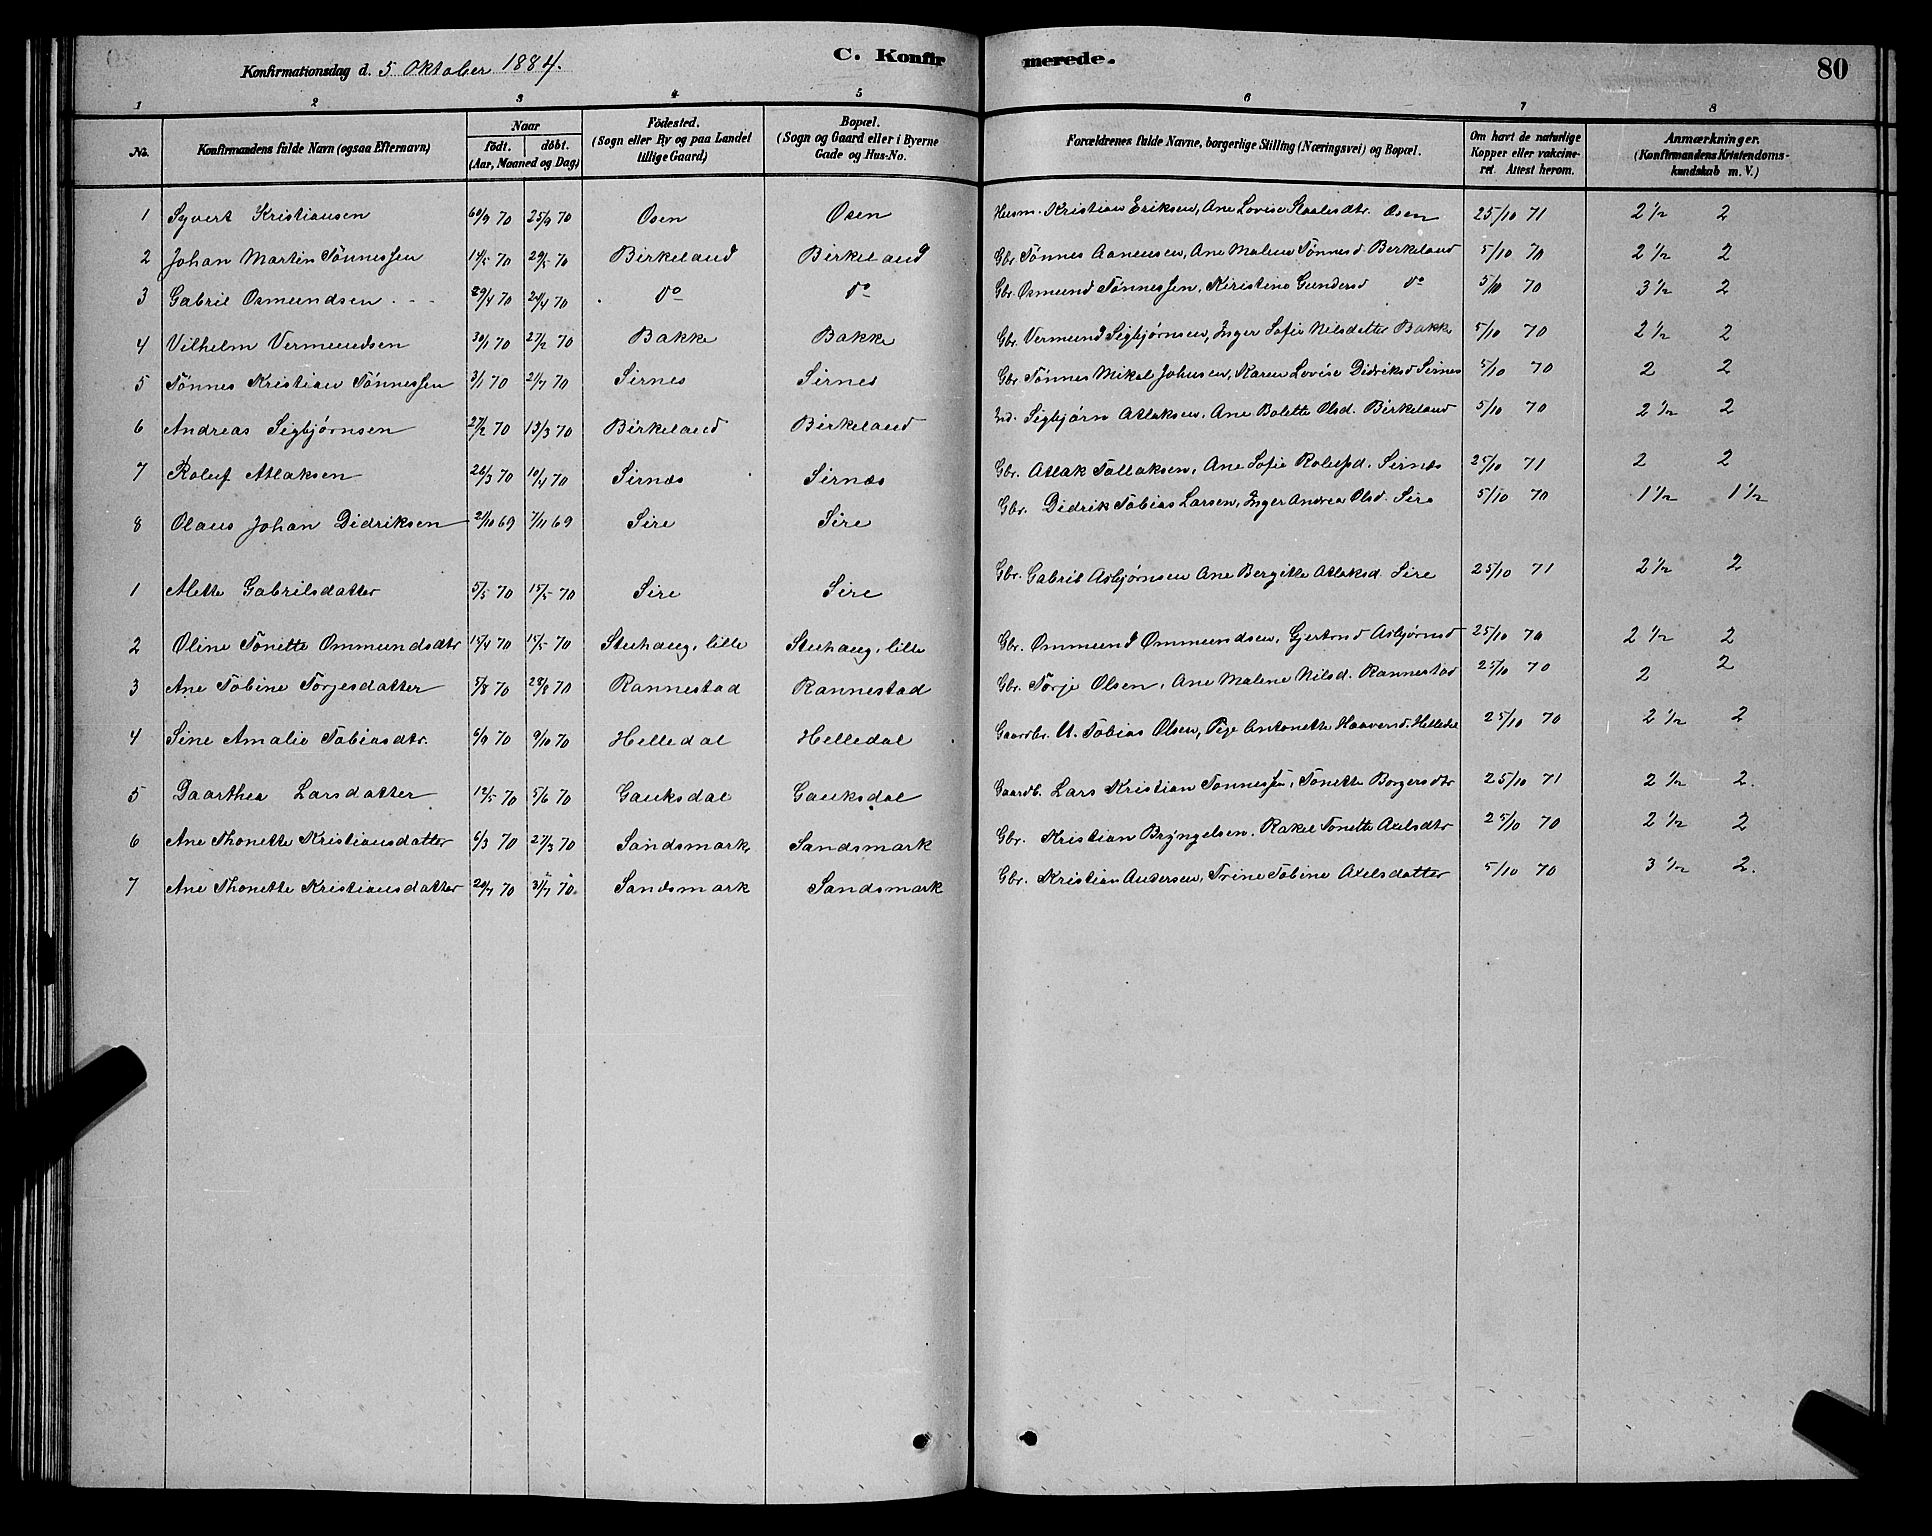 Konfirmationsdag d. 5 Oktober 1884. C. Konfirmerede. 80
1 2 3 4 5 6 7 8
No. Konfirmandens fulde Navn (ogsaa Efternavn) Naar födt. döbt. (Aar, Maaned og Dag) Födested. (Sogn eller By og paa Landet tillige Gaard) Bopæl. (Sogn og Gaard eller i Byerne Gade og Hus-No. Forældrenes fulde Navne, borgerlige Stilling (Næringsvei) og Bopæl. Om havt de naturlige Kopper eller vakcineret. Attest herom. Anmærkninger. (Konfirmandens Kristendomskundskab m. V.)
1 Syvert Kristiansen 70 25/9 70 Osen Osen Husm. Kristian Eriksen, Ane Lovise Staalesdtr. Osen 25/10 71 2 1/2 2
2 Johan Martin Tønnessen 14/5 70 29/5 70 Birkeland Birkeland Gbr. Tønnes Aanensen, Ane Malene Tønnesd. Berkeland 5/10 70 2 1/2 2
3 Gabriel Osmundsen 29/4 70 24/4 70 do do Gbr. Osmund Tønnessen, Kiristine Gundersd do 5/10 70 3 1/2 2
4 Vilhelm Vermundsen 30/1 70 27/2 70 Bakke Bakke Gbr. Vermund Sigbjørnsen, Inger Sofie Nilsdatter Bakke 5/10 70 2 1/2 2
5 Tønnes Kristian Tønnessen 3/1 70 70 Sirnes Sirnes Gbr. Tønnes Mikal Johnsen, Karen Lovise Didriksd Sirnes 5/10 70 2 2
6 Andreas Sigbjørnsen 27/2 70 13/3 70 Birkeland Birkeland Ind. Sigbjørn Atlaksen, Ane Bolette Olsd. Birkeland 5/10 70 2 1/2 2
7 Roluf Atlaksen 26/3 70 10/4 70 Sirnæs Sirnæs Gbr. Atlak Tollaksen, Ane Sofie Rolufsd. Sirnæs 25/10 71 2 2
8 Olaus Johan Didriksen 21/10 69 7/11 69 Sire Sire Gbr. Didrik Tobias Larsen, Inger Andrea Olsd. Sire 5/10 70 1 1/2 1 1/2
1 Mette Gabrielsdatter 5/5 70 15/5 70 Sire Sire Gbr. Gabriel Asbjørnsen Ane Bergitte Atlaksd. Sire 25/10 71 2 1/2 2
2 Oline Tonette Ommundsdtr 15/4 70 15/5 70 Stuhaug, lille Stuhaug, lille Gbr. Ommund Ommundsen, Gjertrud Asbjørnsd 25/10 70 2 1/2 2
3 Ane Tobine Torjesdatter 5/8 70 28/8 70 Rannestad Rannestad Gbr. Torje Olsen, Ane Malene Nilsd. Rannestad 25/10 70 2 2
4 Sine Amalie Tobiasdtr. 6/9 70 9/10 70 Helledal Helledal Gaardbr. Tobias Olsen, Antonette Haaversd. Helledal 25/10 70 2 1/2 2
5 Daarthea Larsdatter 12/5 70 5/6 70 Gauksdal Gauksdal Gaardb. Lars Kristian Tonnessen, Tonette Borgersdtr 25/10 71 2 1/2 2.
6 Ane Thonette Kristiansdatter 6/3 70 27/3 70 Sandsmark Sandsmark Gbr. Kristian Bryngelsen, Rakel Tonette Axelsdtr 25/10 70 2 1/2 2
7 Ane Thonette Kristiansdatter 20/7 70 31/7 70 Sandsmark Sandsmark Gbr. Kristian Andersen, Trine Tobine Axelsdatter 5/10 70 3 1/2 2.